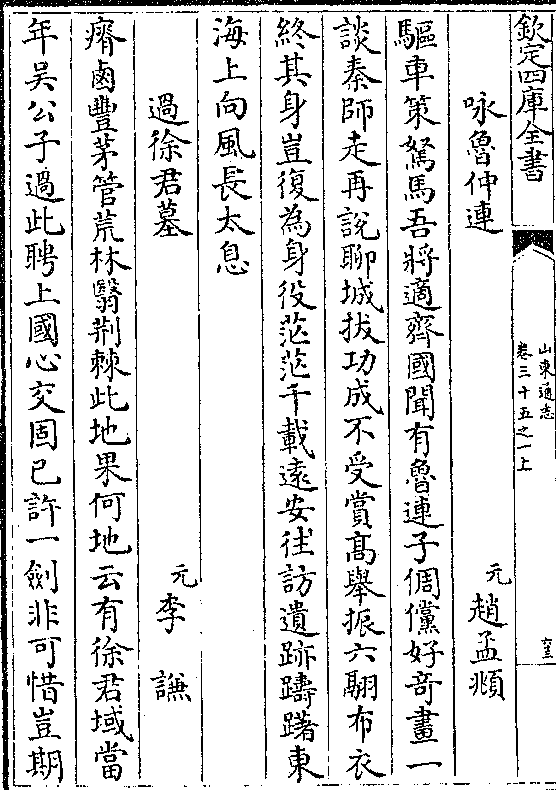 欽定四庫全書
山東通志
卷三十五之一上
詠魯仲連
元趙孟頫
驅車策駑馬吾將適齊國聞有魯連子倜儻好奇畫一
談秦師走再說聊城拔功成不受賞髙舉振六翮布衣
終其身豈復為身役茫茫千載遠安往訪遺跡躊躇東
海上向風長太息
過徐君墓
元李謙
瘠鹵豐茅管荒林翳荆棘此地果何地云有徐君域當
年吳公子過此聘上國心交固已許一劍非可惜豈期